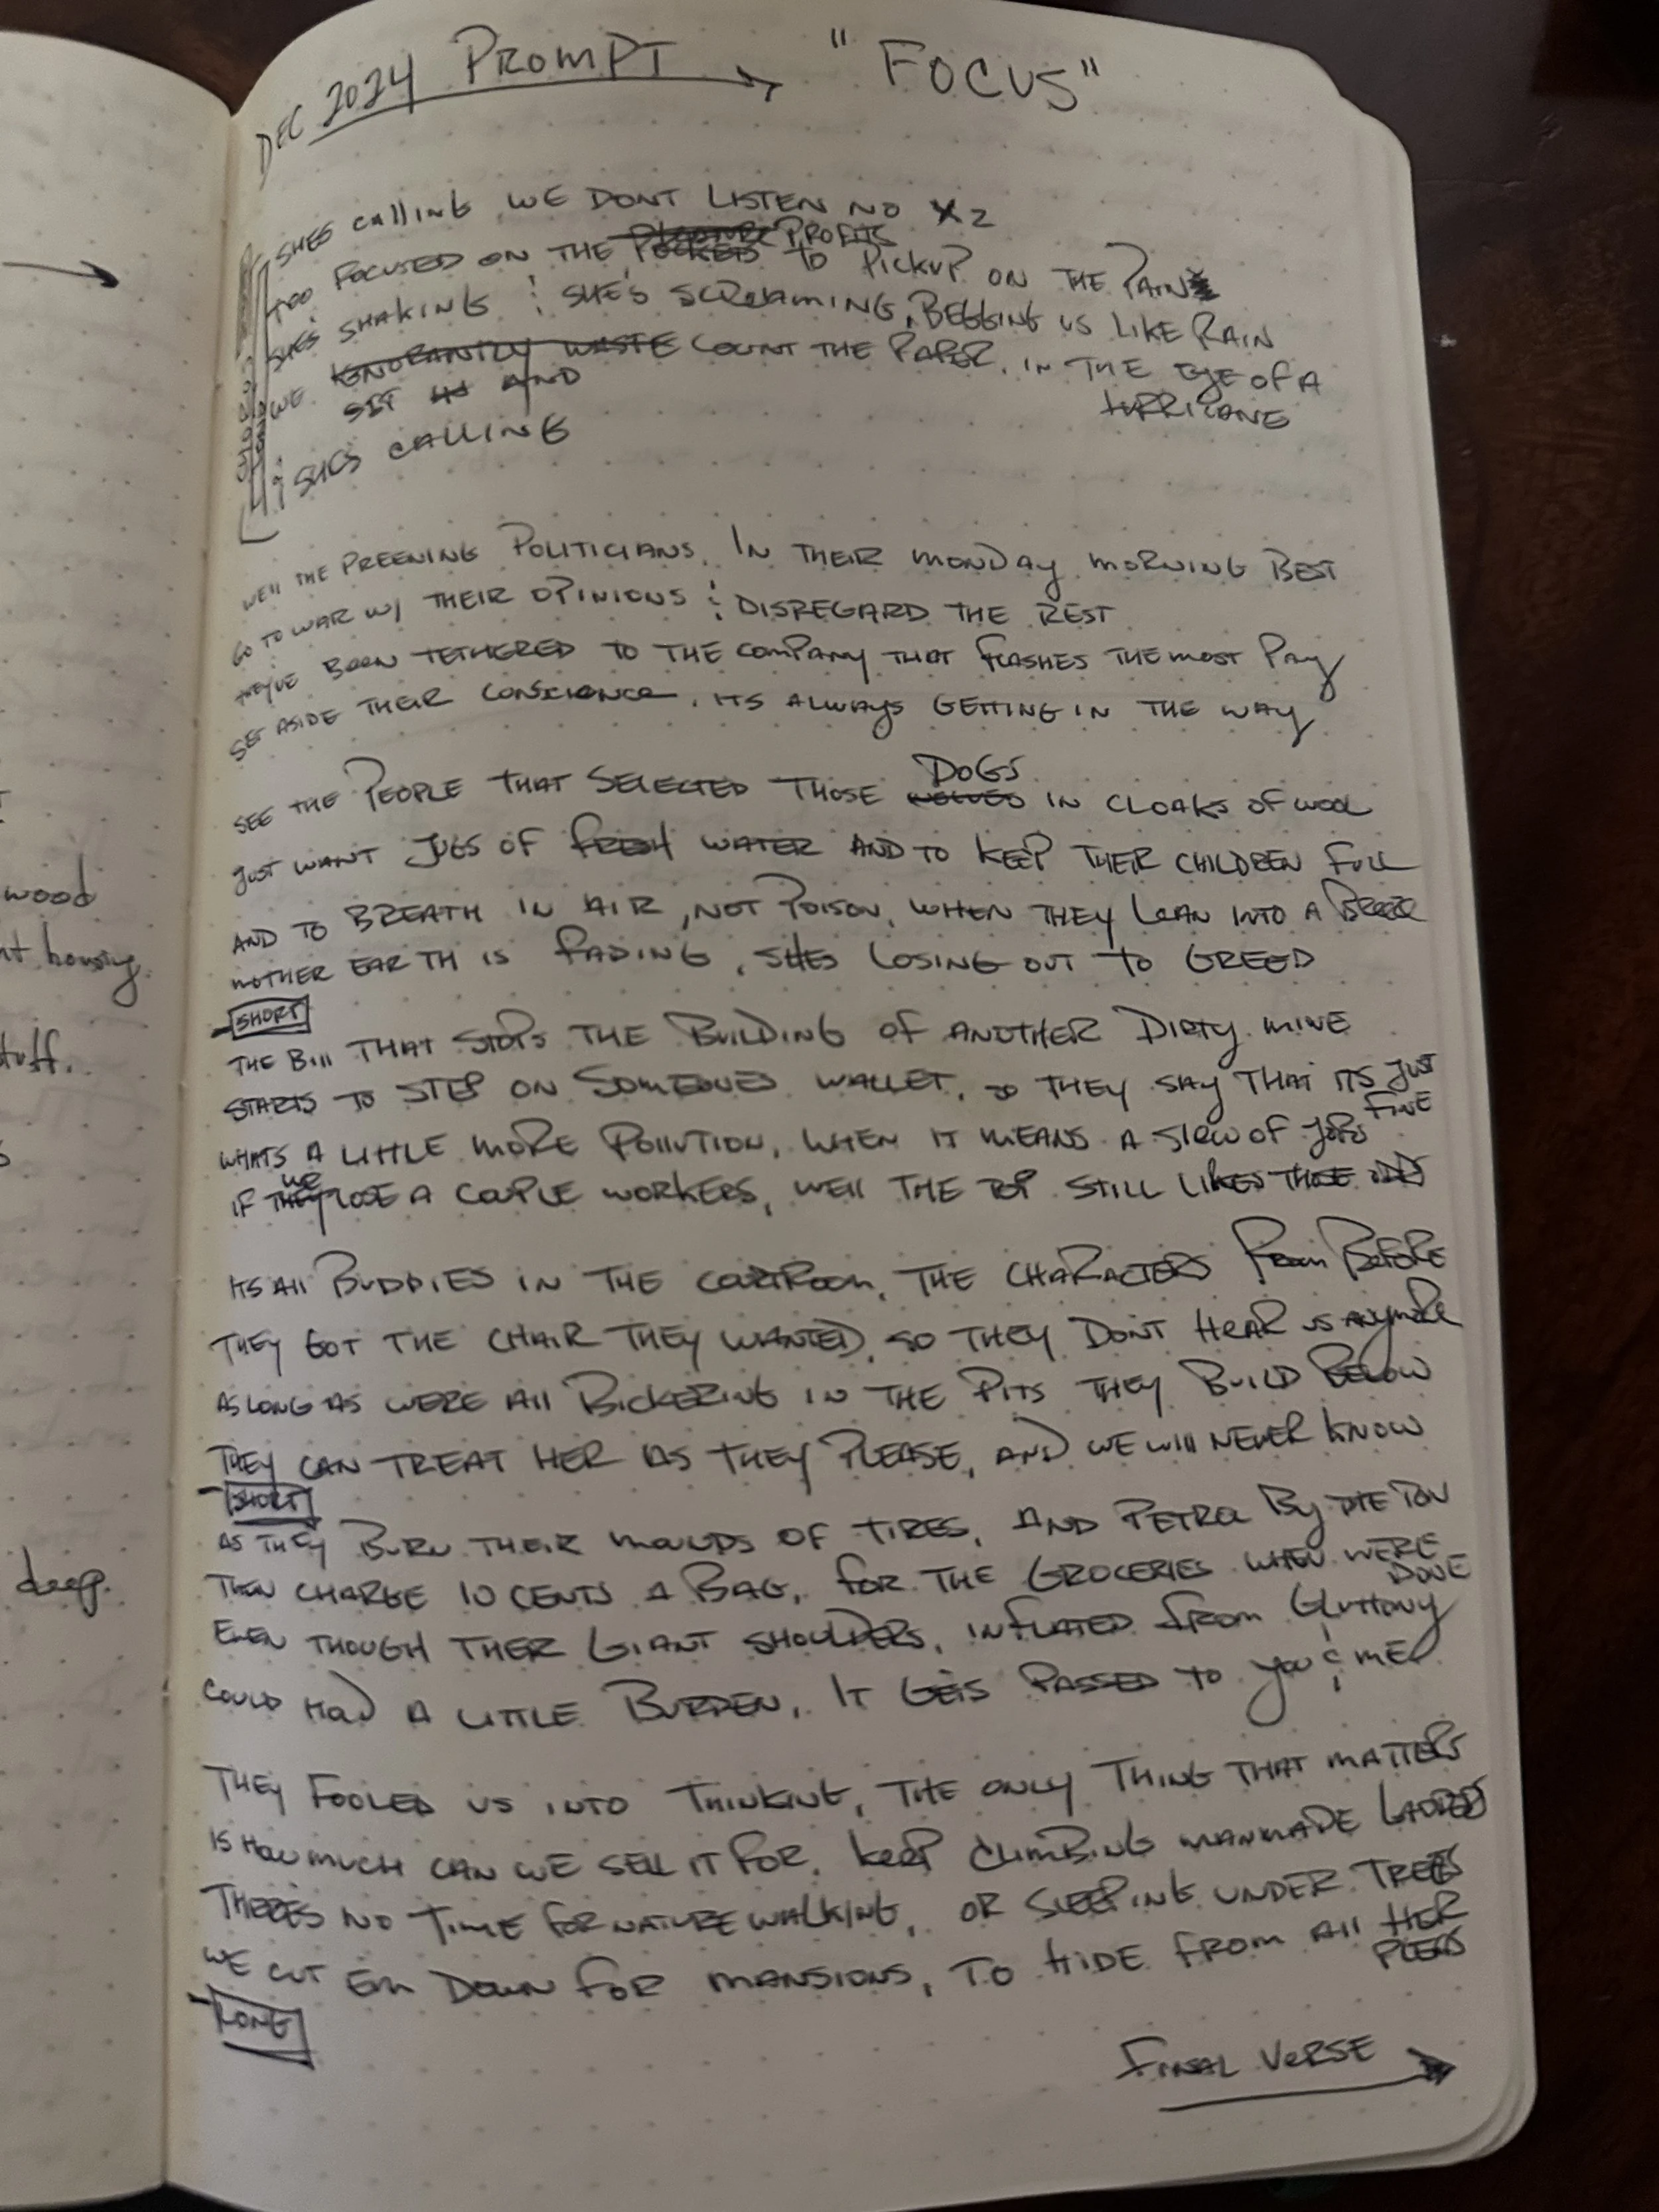 DEC 2024 PROMPT → "FOCUS"
SHES CALLING WE DONT LISTEN NO X2
TOO FOCUSED ON THE PROFITS TO PICKUP ON THE PAIN
SHES SHAKING & SHE'S SCREAMING, BEGGING US LIKE RAIN
WE IGNORANTLY WASTE COUNT THE PAPER, IN THE EYE OF A
SIT AND HURRICANE
SHES CALLING
WELL THE PREENING POLITICIANS, IN THEIR MONDAY MORNING BEST
GO TO WAR W/ THEIR OPINIONS & DISREGARD THE REST
THEY'VE BEEN TETHERED TO THE COMPANY THAT FLASHES THE MOST PAY
SET ASIDE THEIR CONSCIENCE, ITS ALWAYS GETTING IN THE WAY
DOGS
SEE THE PEOPLE THAT SELECTED THOSE WOLVES IN CLOAKS OF WOOL
JUST WANT JUGS OF FRESH WATER AND TO KEEP THEIR CHILDREN FULL
AND TO BREATH IN AIR, NOT POISON, WHEN THEY LEAN INTO A BREEZE
MOTHER EARTH IS FADING, SHES LOSING OUT TO GREED
SHORT
THE BILL THAT STOPS THE BUILDING OF ANOTHER DIRTY MINE
STARTS TO STEP ON SOMEONES WALLET, SO THEY SAY THAT ITS JUST
FINE
WHATS A LITTLE MORE POLLUTION, WHEN IT MEANS A SLEW OF JOBS
WE
IF THEY LOSE A COUPLE WORKERS, WELL THE TOP STILL LIKES THOSE ODDS
ITS ALL BUDDIES IN THE COURTROOM, THE CHARACTERS FROM BEFORE
THEY GOT THE CHAIR THEY WANTED, SO THEY DONT HEAR US ANYMORE
AS LONG AS WERE ALL BICKERING IN THE PITS THEY BUILD BELOW
THEY CAN TREAT HER AS THEY PLEASE, AND WE WILL NEVER KNOW
SHORT
AS THEY BURN THEIR MOUNDS OF TIRES, AND PETROL BY THE TON
THEN CHARGE 10 CENTS A BAG, FOR THE GROCERIES WHEN WERE
DONE
EVEN THOUGH THER GIANT SHOULDERS, INFLATED FROM GLUTTONY
COULD HOLD A LITTLE BURDEN, IT GETS PASSED TO YOU & ME
THEY FOOLED US INTO THINKING, THE ONLY THING THAT MATTERS
IS HOW MUCH CAN WE SELL IT FOR, KEEP CLIMBING MANMADE LADDERS
THERES NO TIME FOR NATURE WALKING, OR SLEEPING UNDER TREES
WE CUT EM DOWN FOR MANSIONS, TO HIDE FROM ALL HER
PLEAS
LONG
FINAL VERSE →
wood
housing.
stuff.
deep.